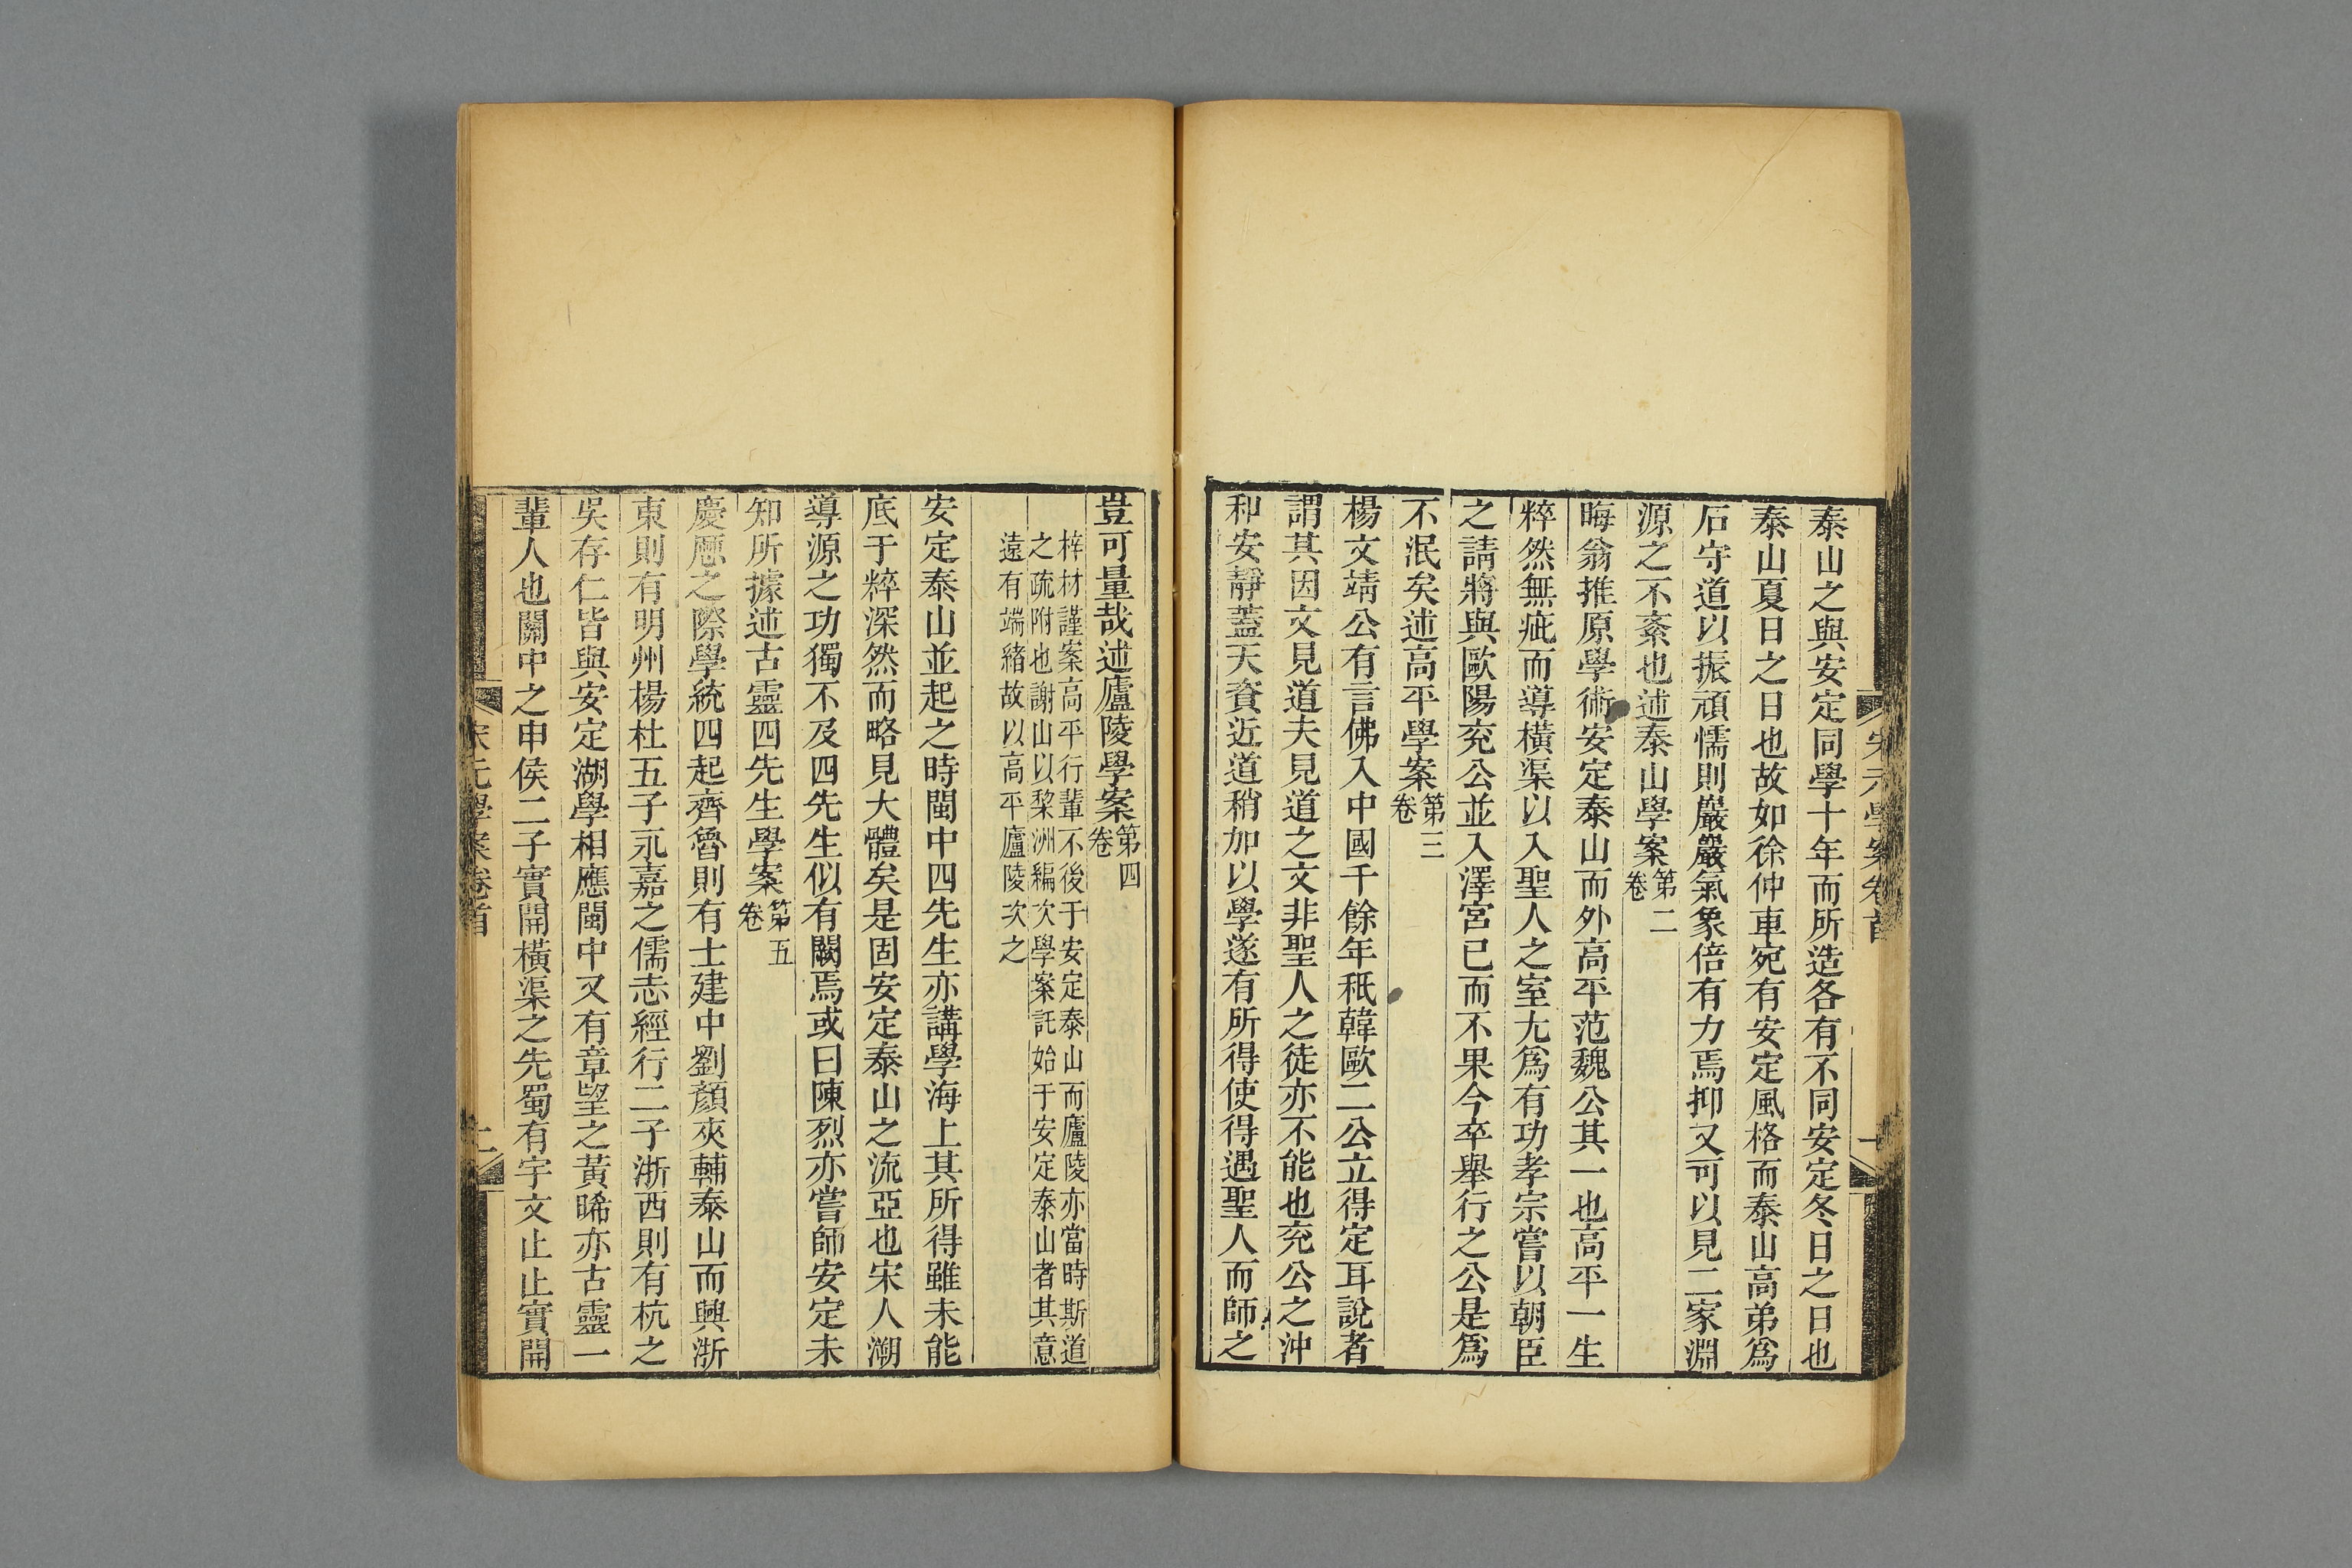 泰山之與安定同學十年而所造各有不同安定冬日之日也
泰山夏日之日也故如徐仲車宛有安定風格而泰山高弟爲
石守道以振頑懦則巖巖氣象倍有力焉抑又可以見二家淵
源之不紊也述泰山學案第二卷
晦翁推原學術安定泰山而外高平范魏公其一也高平一生
粹然無疵而導橫渠以入聖人之室尤爲有功孝宗嘗以朝臣
之請將與歐陽兖公並入澤宮已而不果今卒舉行之公是爲
不泯矣述高平學案第三卷
楊文靖公有言佛入中國千餘年秖韓歐二公立得定耳說者
謂其因文見道夫見道之文非聖人之徒亦不能也兖公之沖
和安靜蓋天資近道稍加以學遂有所得使得遇聖人而師之
豈可量哉述廬陵學案第四卷
梓材謹案高平行輩不後于安定泰山而廬陵亦當時斯道
之疏附也謝山以黎洲編次學案託始于安定泰山者其意
遠有端緒故以高平廬陵次之
安定泰山並起之時閩中四先生亦講學海上其所得雖未能
底于粹深然而略見大體矣是固安定泰山之流亞也宋人溯
導源之功獨不及四先生似有闕焉或曰陳烈亦嘗師安定未
知所據述古靈四先生學案第五卷
慶厯之際學統四起齊魯則有士建中劉顏夾輔泰山而興浙
東則有明州楊杜五子永嘉之儒志經行二子浙西則有杭之
吳存仁皆與安定湖學相應閩中又有章望之黃晞亦古靈一
輩人也關中之申侯二子實開橫渠之先蜀有宇文止止實開
宋元學案卷首
二